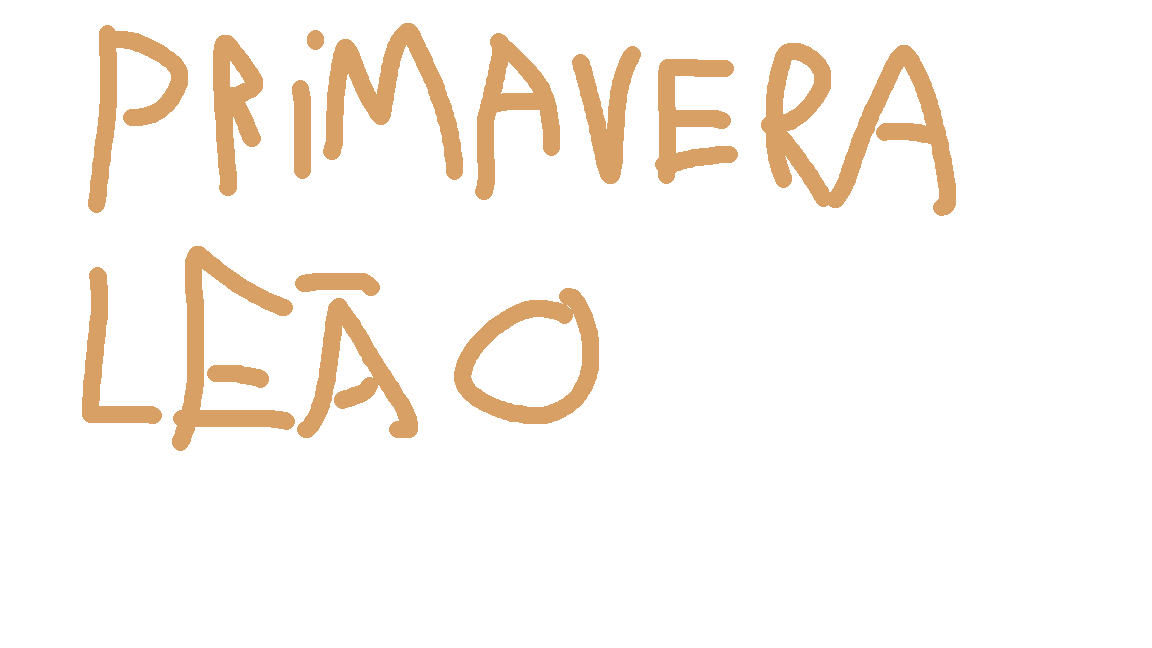 PRiMAVERA
LEÃO